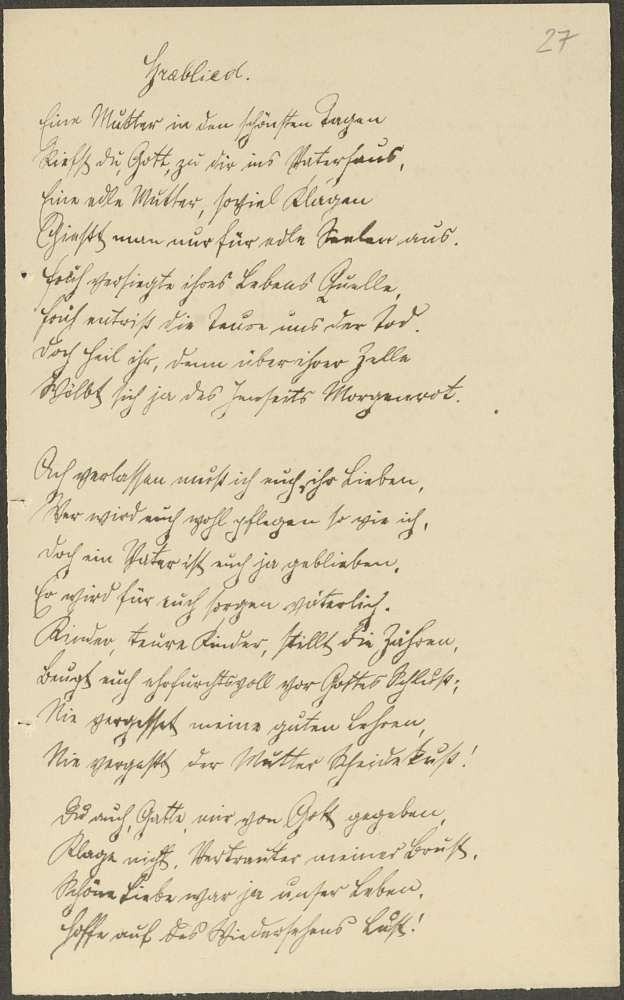 27
Grablied.
Eine Mutter in den schönsten Tagen
Riefst du, Gott, zu dir ins Vaterhaus,
Eine edle Mutter, soviel Klagen
Schickt man nur für edle Seelen aus.
Früh versiegte ihres Lebens Quelle,
Früh entriß die Teure uns der Tod.
Doch Heil ihr, denn über ihrer Zelle
Wölbt sich ja des Jenseits Morgenrot.
Ach verlassen muß ich euch, ihr Lieben,
Wer wird euch wohl pflegen so wie ich,
Doch ein Vater ist euch ja geblieben,
Er wird für euch sorgen väterlich.
Kinder, teure Kinder, stillt die Zähren,
Beugt euch ehrfurchtsvoll vor Gottes Schluß;
Nie vergesset meine guten Lehren,
Nie vergeßt der Mutter Scheidekuß!
Du auch, Gatte, mir von Gott gegeben,
Klage nicht, Vertrauter meiner Brust,
Schöne Liebe war ja unser Leben,
Hoffe auf des Wiedersehens Lust!